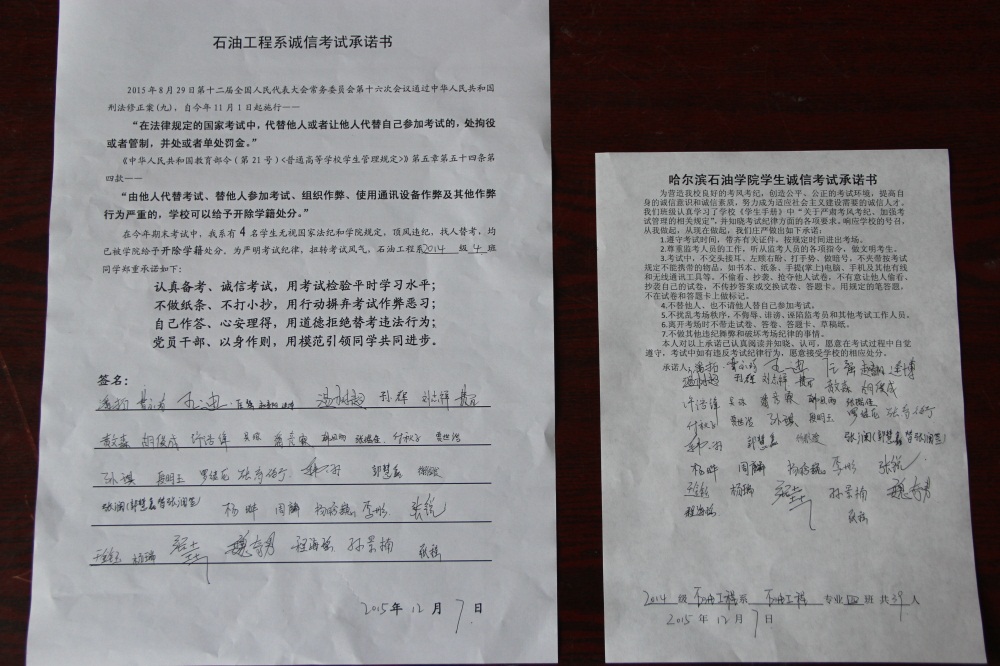 石油工程系诚信考试承诺书
2015年8月29日第十二届全国人民代表大会常务委员会第十六次会议通过中华人民共和国
刑法修正案(九)，自今年11月1日起施行——
“在法律规定的国家考试中，代替他人或者让他人代替自己参加考试的，处拘役
或者管制，并处或者单处罚金。”
《中华人民共和国教育部令(第21号)<普通高等学校学生管理规定>》第五章第五十四条第
四款——
“由他人代替考试、替他人参加考试、组织作弊、使用通讯设备作弊及其他作弊
行为严重的，学校可以给予开除学籍处分。”
在今年期末考试中，我系有4名学生无视国家法纪和学院规定，顶风违纪，找人替考，均
已被学院给予开除学籍处分。为严明考试纪律，扭转考试风气，石油工程系2014级4班
同学郑重承诺如下：
认真备考、诚信考试，用考试检验平时学习水平；
不做纸条、不打小抄，用行动摒弃考试作弊恶习；
自己作答、心安理得，用道德拒绝替考违法行为；
党员干部、以身作则，用模范引领同学共同进步。
签名：
刘志祥
胡俊成 许浩锋
孙祺 郭慧磊
杨晔 周麟 李彤 张锐
杨瑞 程海磊 孙景楠
2015年12月7日
哈尔滨石油学院学生诚信考试承诺书
为营造我校良好的考风考纪，创造公平、公正的考试环境，提高自
身的诚信意识和诚信素质，努力成为适应社会主义建设需要的诚信人才，
我们班级认真学习了学校《学生手册》中“关于严肃考风考纪、加强考
试管理的相关规定”，并知晓考试纪律方面的各项要求。响应学校的号召，
从我做起，从现在做起，我们庄严做出如下承诺：
1.遵守考试时间，带齐有关证件、按规定时间进出考场。
2.尊重监考人员的工作，听从监考人员的各项指令，做文明考生。
3.考试中，不交头接耳、左顾右盼、打手势、做暗号，不夹带按考试
规定不能携带的物品，如书本、纸条、手提(掌上)电脑、手机及其他有线
和无线通讯工具等。不偷看、抄袭、抢夺他人试卷，不有意让他人偷看、
抄袭自己的试卷，不传抄答案或交换试卷、答题卡。用规定的笔答题，
不在试卷和答题卡上做标记。
4.不替他人、也不请他人替自己参加考试。
5.不扰乱考场秩序，不侮辱、诽谤、诬陷监考员和其他考试工作人员。
6.离开考场时不带走试卷、答卷、答题卡、草稿纸。
7.不做其他违纪舞弊和破坏考场纪律的事情。
本人对以上承诺已认真阅读并知晓、认可，愿意在考试过程中自觉
遵守，考试中如有违反考试纪律行为，愿意接受学校的相应处分。
承诺人：
刘志祥 胡俊成
许浩锋
孙祺
郭慧磊
杨晔 周麟 李彤 张锐
杨瑞 孙景楠
程海磊
2014级 石油工程系 石油工程 专业 四 班 共39人
2015年12月7日